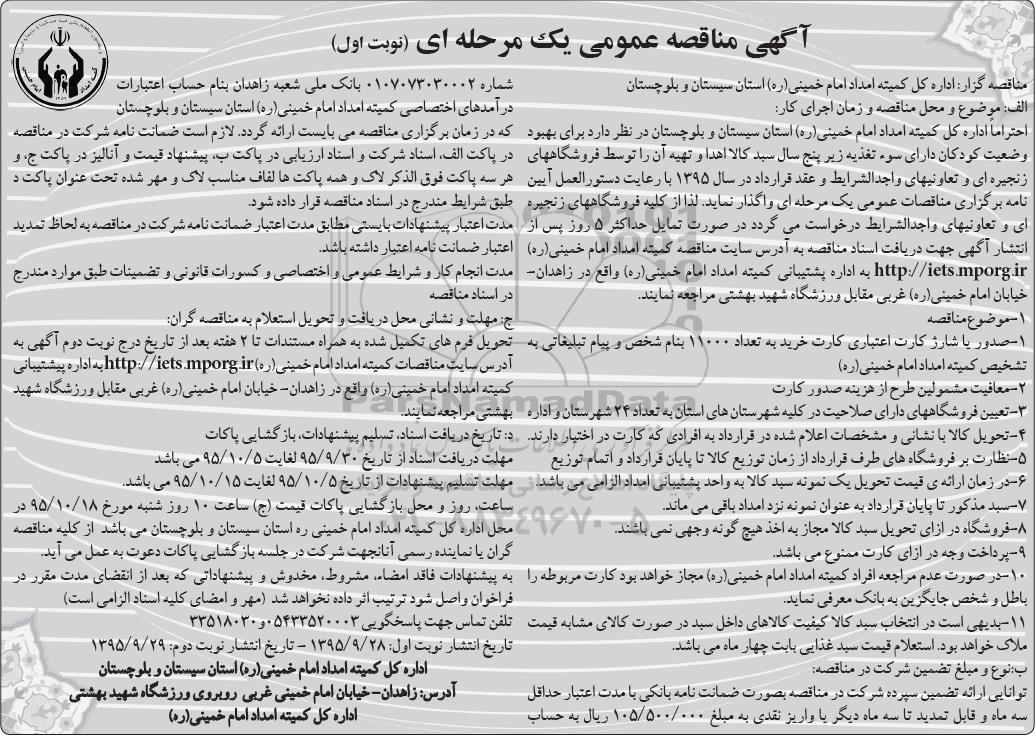 آگهی مناقصه عمومی یک مرحله ای (نوبت اول)
مناقصه گزار: اداره کل کمیته امداد امام خمینی(ره) استان سیستان و بلوچستان
الف: موضوع و محل مناقصه و زمان اجرای کار:
احتراما اداره کل کمیته امداد امام خمینی(ره) استان سیستان و بلوچستان در نظر دارد برای بهبود
وضعیت کودکان دارای سوء تغذیه زیر پنج سال سبد کالا اهدا و تهیه آن را توسط فروشگاههای
زنجیره ای و تعاونیهای واجدالشرایط و عقد قرارداد در سال ۱۳۹۵ با رعایت دستورالعمل آیین
نامه برگزاری مناقصات عمومی یک مرحله ای واگذار نماید. لذا از کلیه فروشگاههای زنجیره
ای و تعاونیهای واجدالشرایط درخواست می گردد در صورت تمایل حداکثر ۵ روز پس از
انتشار آگهی جهت دریافت اسناد مناقصه به آدرس سایت مناقصه کمیته امداد امام خمینی(ره)
http://iets.mporg.ir به اداره پشتیبانی کمیته امداد امام خمینی(ره) واقع در زاهدان-
خیابان امام خمینی(ره) غربی مقابل ورزشگاه شهید بهشتی مراجعه نمایند.
۱-موضوع مناقصه
۱-صدور یا شارژ کارت اعتباری کارت خرید به تعداد ۱۱۰۰۰ بنام شخص و پیام تبلیغاتی به
تشخیص کمیته امداد امام خمینی(ره)
۲-معافیت مشمولین طرح از هزینه صدور کارت
۳-تعیین فروشگاههای دارای صلاحیت در کلیه شهرستان های استان به تعداد ۲۴ شهرستان و اداره
۴-تحویل کالا با نشانی و مشخصات اعلام شده در قرارداد به افرادی که کارت در اختیار دارند.
۵-نظارت بر فروشگاه های طرف قرارداد از زمان توزیع کالا تا پایان قرارداد و اتمام توزیع
۶-در زمان ارائه ی قیمت تحویل یک نمونه سبد کالا به واحد پشتیبانی امداد الزامی می باشد.
۷-سبد مذکور تا پایان قرارداد به عنوان نمونه نزد امداد باقی می ماند.
۸-فروشگاه در ازای تحویل سبد کالا مجاز به اخذ هیچ گونه وجهی نمی باشند.
۹-پرداخت وجه در ازای کارت ممنوع می باشد.
۱۰-در صورت عدم مراجعه افراد کمیته امداد امام خمینی(ره) مجاز خواهد بود کارت مربوطه را
باطل و شخص جایگزین به بانک معرفی نماید.
۱۱-بدیهی است در انتخاب سبد کالا کیفیت کالاهای داخل سبد در صورت کالای مشابه قیمت
ملاک خواهد بود. استعلام قیمت سبد غذایی بابت چهار ماه می باشد.
ب:نوع و مبلغ تضمین شرکت در مناقصه:
توانایی ارائه تضمین سپرده شرکت در مناقصه بصورت ضمانت نامه بانکی با مدت اعتبار حداقل
سه ماه و قابل تمدید تا سه ماه دیگر یا واریز نقدی به مبلغ ۱۰۵/۵۰۰/۰۰۰ ریال به حساب
شماره ۰۱۰۷۰۷۳۰۳۰۰۰۲ بانک ملی شعبه زاهدان بنام حساب اعتبارات
درآمدهای اختصاصی کمیته امداد امام خمینی(ره) استان سیستان و بلوچستان
که در زمان برگزاری مناقصه می بایست ارائه گردد. لازم است ضمانت نامه شرکت در مناقصه
در پاکت الف، اسناد شرکت و اسناد ارزیابی در پاکت ب، پیشنهاد قیمت و آنالیز در پاکت ج، و
هر سه پاکت فوق الذکر لاک و همه پاکت ها لفاف مناسب لاک و مهر شده تحت عنوان پاکت د
طبق شرایط مندرج در اسناد مناقصه قرار داده شود.
مدت اعتبار پیشنهادات بایستی مطابق مدت اعتبار ضمانت نامه شرکت در مناقصه به لحاظ تمدید
اعتبار ضمانت نامه اعتبار داشته باشد.
مدت انجام کار و شرایط عمومی و اختصاصی و کسورات قانونی و تضمینات طبق موارد مندرج
در اسناد مناقصه
ج: مهلت و نشانی محل دریافت و تحویل استعلام به مناقصه گران:
تحویل فرم های تکمیل شده به همراه مستندات تا ۲ هفته بعد از تاریخ درج نوبت دوم آگهی به
آدرس سایت مناقصات کمیته امداد امام خمینی(ره) http://iets.mporg.ir به اداره پیشتیبانی
کمیته امداد امام خمینی(ره) واقع در زاهدان- خیابان امام خمینی(ره) غربی مقابل ورزشگاه شهید
بهشتی مراجعه نمایند.
د: تاریخ دریافت اسناد، تسلیم پیشنهادات، بازگشایی پاکات
مهلت دریافت اسناد از تاریخ ۹۵/۹/۳۰ لغایت ۹۵/۱۰/۵ می باشد
مهلت تسلیم پیشنهادات از تاریخ ۹۵/۱۰/۵ لغایت ۹۵/۱۰/۱۵ می باشد.
ساعت، روز و محل بازگشایی پاکات قیمت (ج) ساعت ۱۰ روز شنبه مورخ ۹۵/۱۰/۱۸ در
محل اداره کل کمیته امداد امام خمینی ره استان سیستان و بلوچستان می باشد از کلیه مناقصه
گران یا نماینده رسمی آنانجهت شرکت در جلسه بازگشایی پاکات دعوت به عمل می آید.
به پیشنهادات فاقد امضاء، مشروط، مخدوش و پیشنهاداتی که بعد از انقضای مدت مقرر در
فراخوان واصل شود ترتیب اثر داده نخواهد شد (مهر و امضای کلیه اسناد الزامی است)
تلفن تماس جهت پاسخگویی ۰۵۴۳۳۵۲۰۰۰۳ و ۳۳۵۱۸۰۳۰
تاریخ انتشار نوبت اول: ۱۳۹۵/۹/۲۸ - تاریخ انتشار نوبت دوم: ۱۳۹۵/۹/۲۹
اداره کل کمیته امداد امام خمینی(ره) استان سیستان و بلوچستان
آدرس: زاهدان- خیابان امام خمینی غربی روبروی ورزشگاه شهید بهشتی
اداره کل کمیته امداد امام خمینی(ره)
ParsNamadData